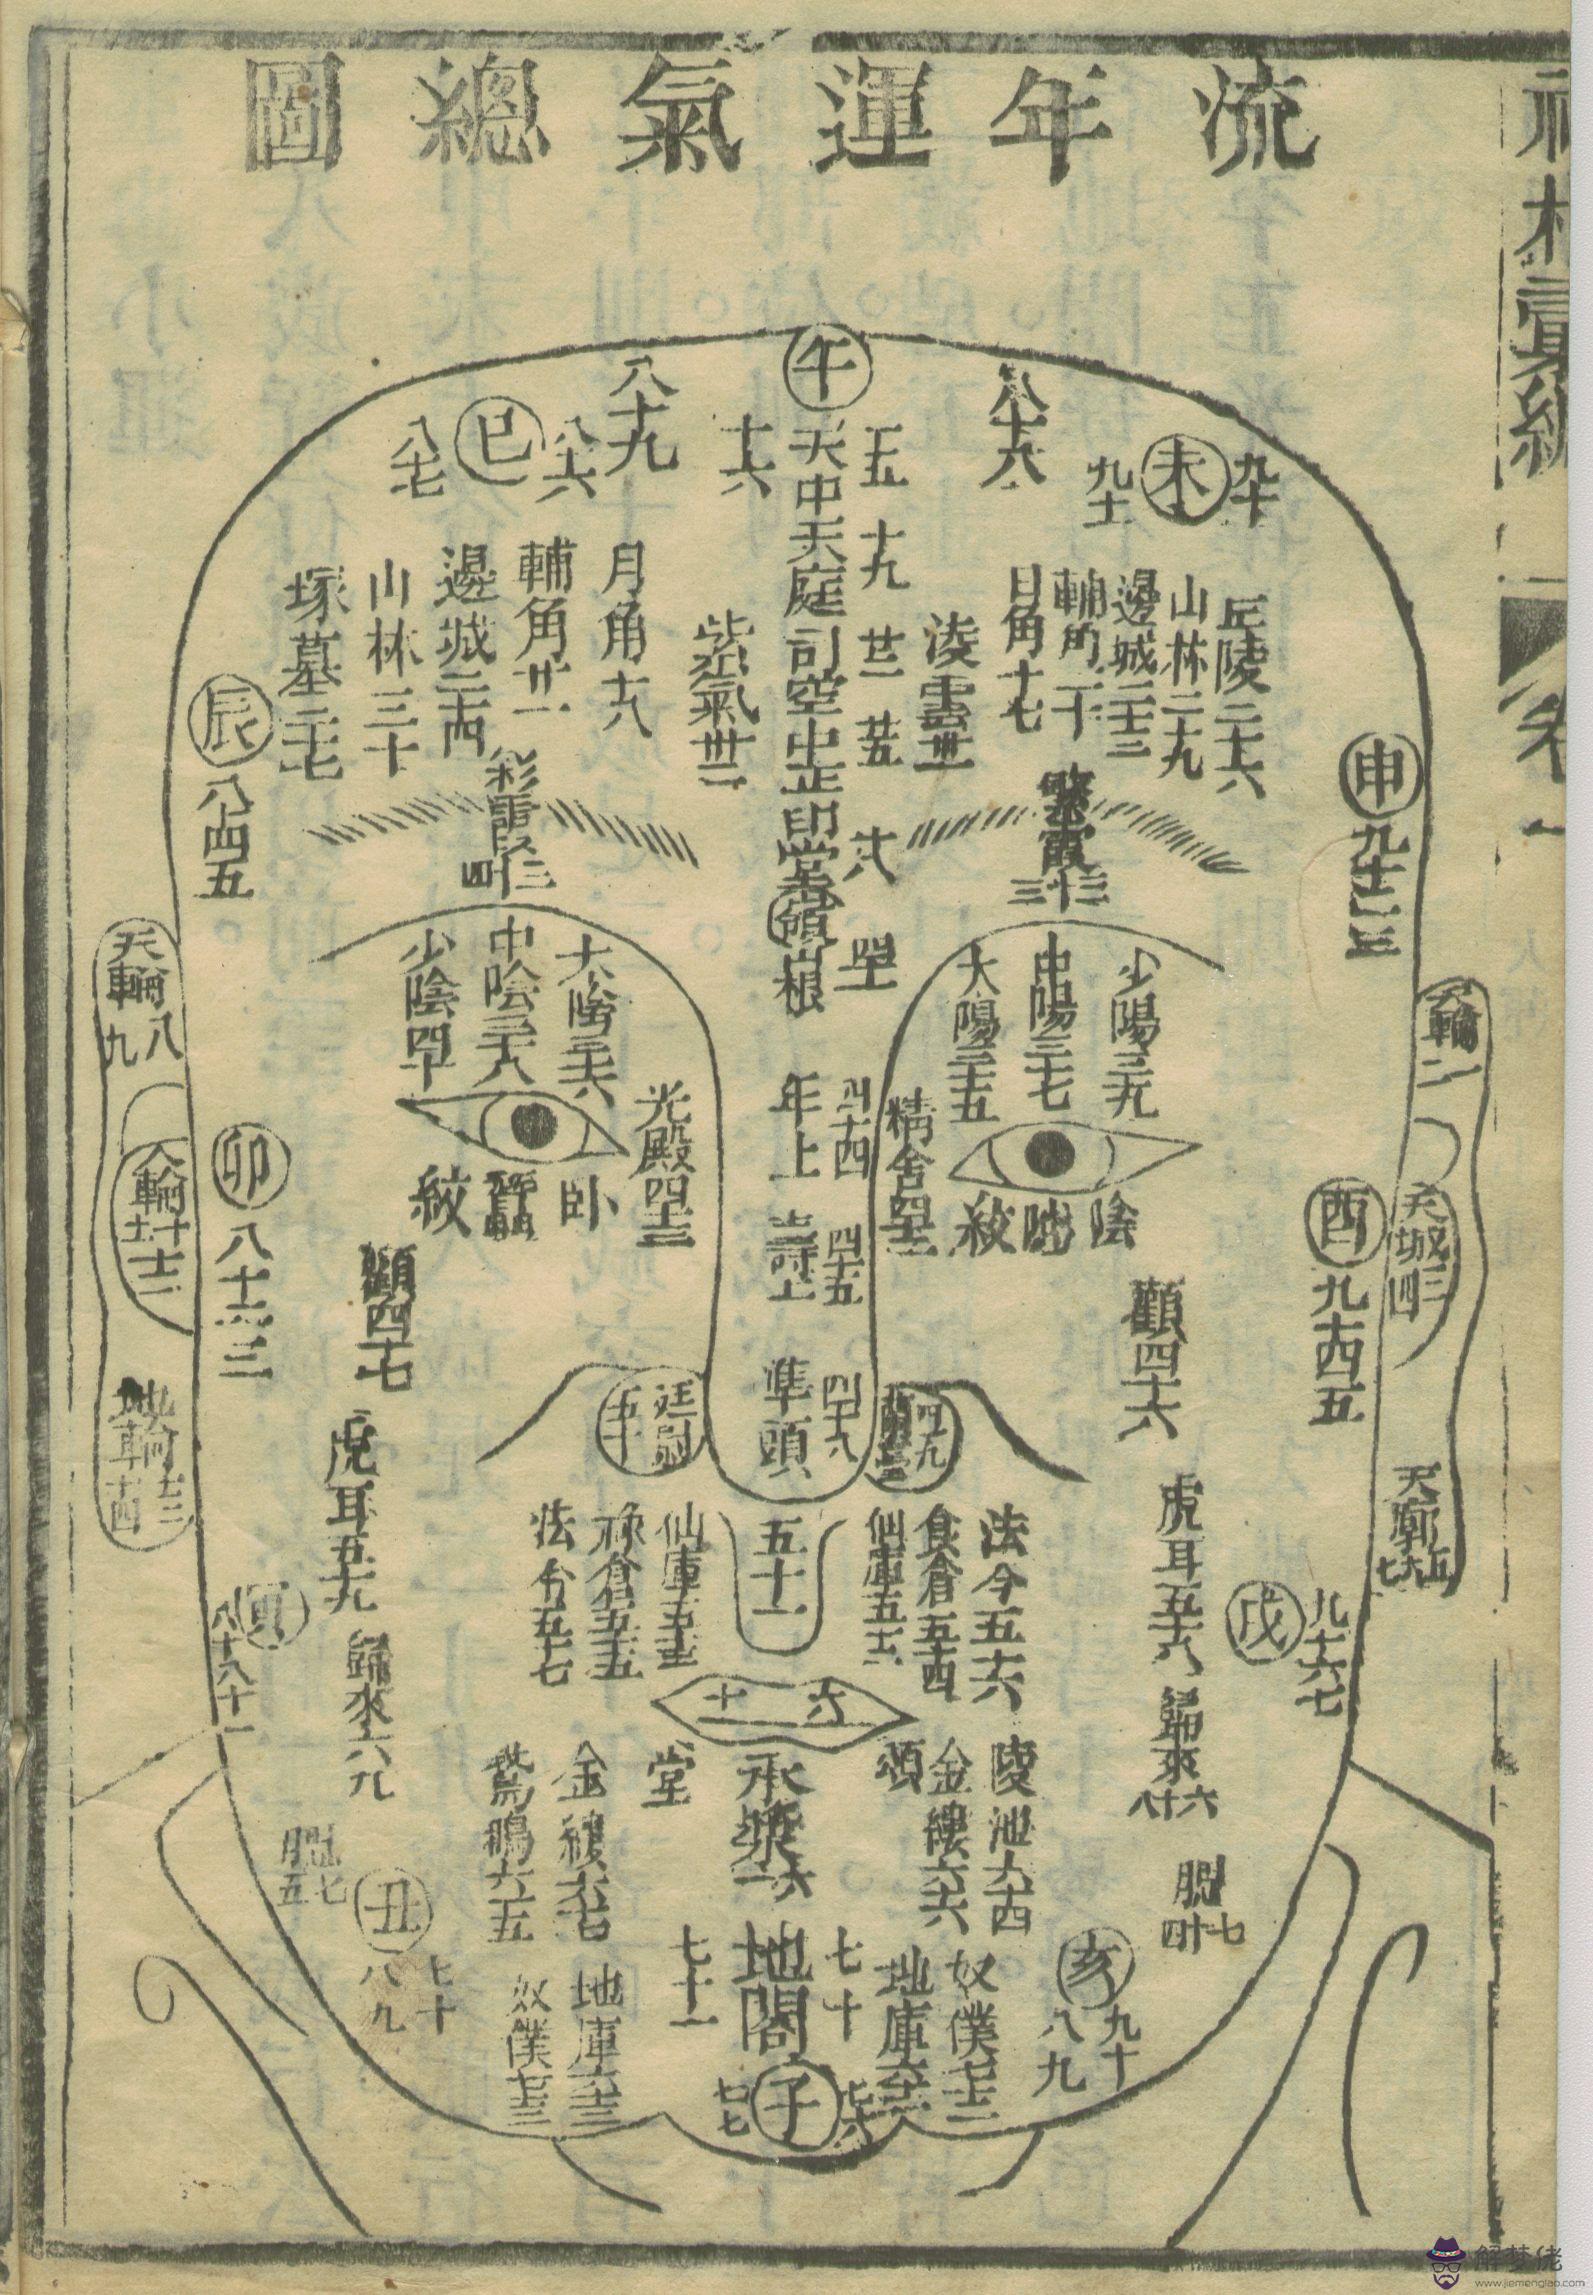 流年運氣總圖
神相彙編
卷一
午
天中
天庭
司空
中正
印堂
山根
年上
壽上
準頭
十六
十九
廿二
廿五
廿八
四一
四十四
四十五
四十八
八十八
九十
未
九十一
丘陵二十六
山林二十九
邊城二十三
輔角二十
日角十七
凌雲卅一
繁霞三十三
申
九十二三
少陽三十九
中陽三十七
太陽三十五
天輪一二
精舍四十二
陰
紋
酉
九十四五
天城三四
天廓五六七
顴四十六
虎耳五十八
戌
九十六七
四十九
法令五十六
食倉五十四
仙庫五十二
五十一
六十
歸來六十八
腮七十四
陂池六十四
金縷六十六
頌
承漿六十一
堂
亥
九十八九
奴僕七十二
地庫六十二
七十
地閣
七十一
子
七十六
七十七
八十九
八十六
巳
八十七
月角十八
輔角廿一
邊城二十四
山林三十
塚墓二十七
紫氣卅二
彩霞三十四
辰
八十四五
太陰三十六
中陰三十八
少陰四十
光殿四十三
臥蠶紋
天輪八九
人輪十十一十二
地輪十三十四
卯
八十二三
顴四十七
虎耳五十九
廷尉五十
仙庫五十三
祿倉五十五
法令五十七
寅
八十八十一
歸來六十九
金縷六十七
鵞鴨六十五
腮七十五
丑
七十八九
地庫六十三
奴僕七十三
解梦佬
www.jiemenglao.com